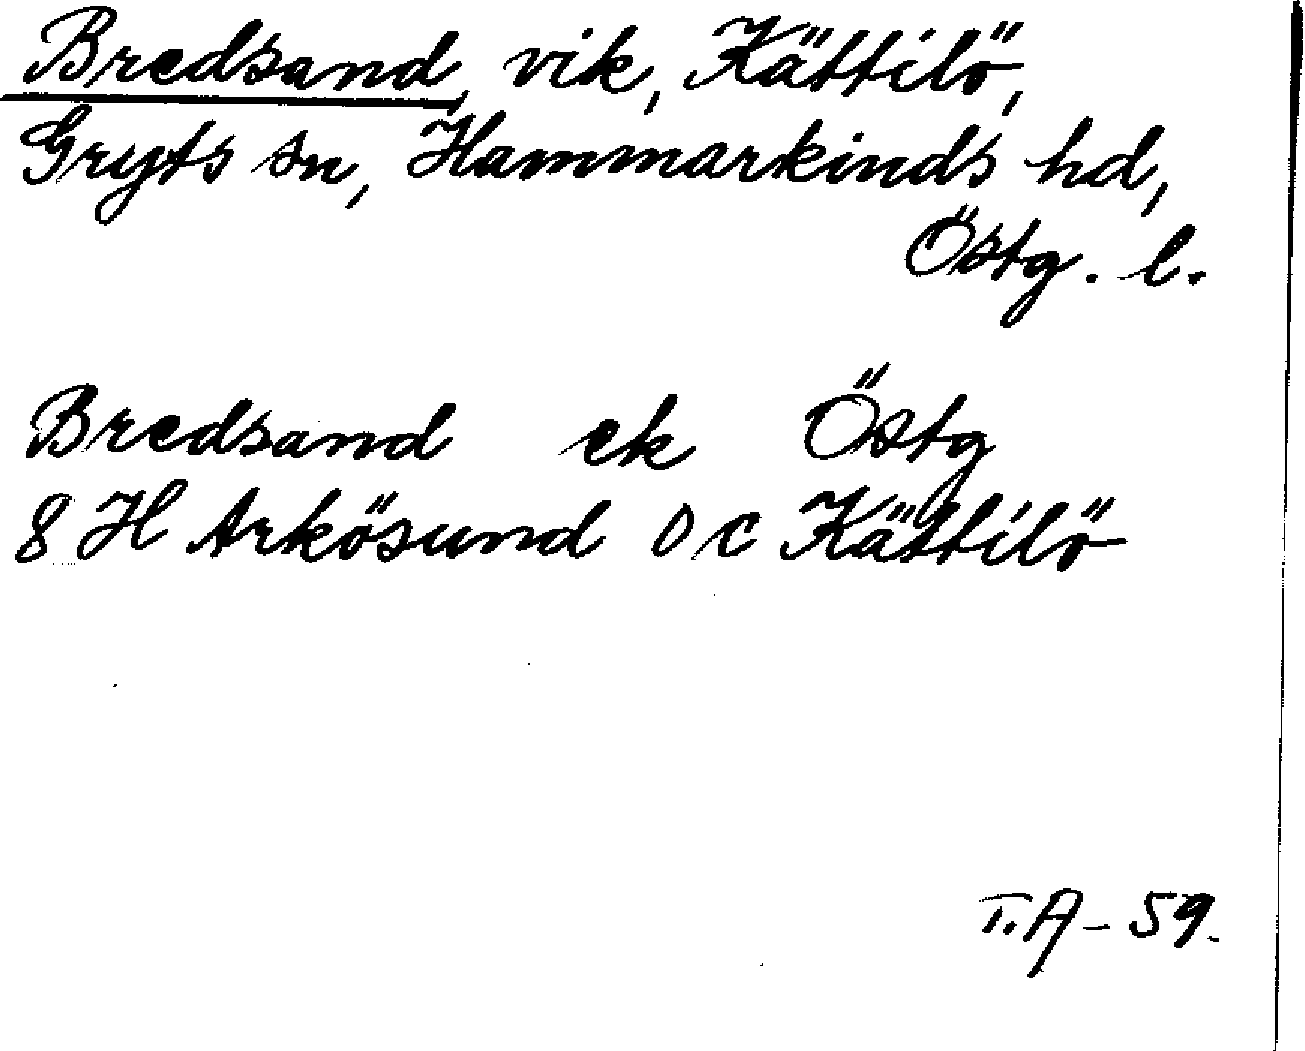 Bredsand, vik, Kättilö,
Gryts sn, Hammarkinds hd,
Östg. l.
Bredsand ek Östg
8 H Arkösund o c Kättilö
T.A - 59.